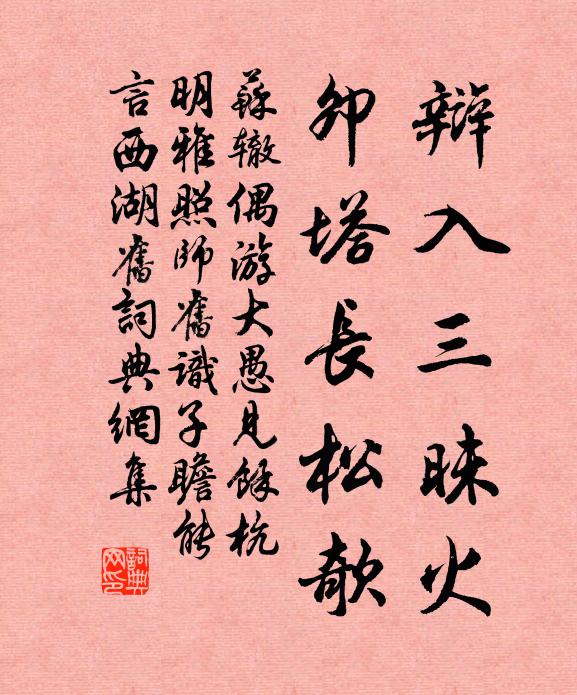 辯入三昧火
卯塔長松欹
蘇轍偶游大愚見餘杭
明雅照師舊識子瞻能
言西湖舊詞典網集
詞典
网印